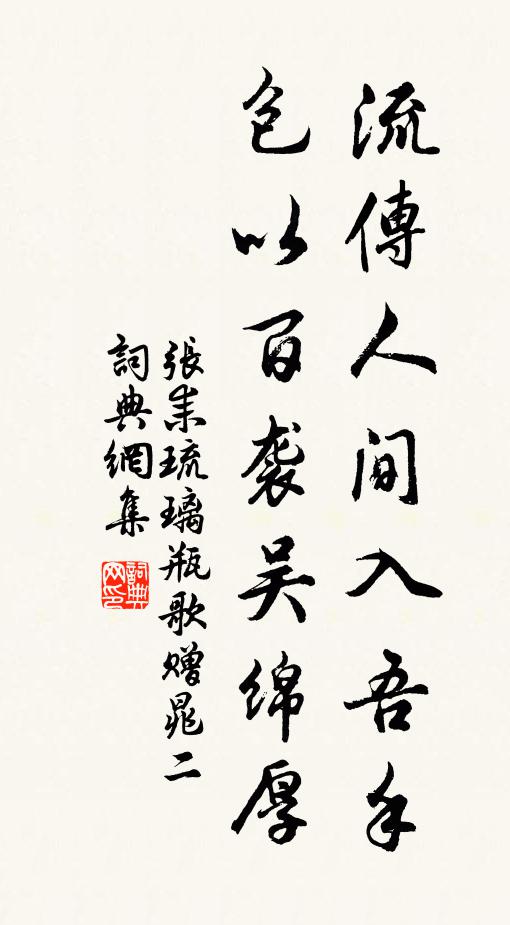 流傳人間入吾手
包以百袭吴綿厚
張耒琉璃瓶歌贈晁二
詞典網集
詞典网印